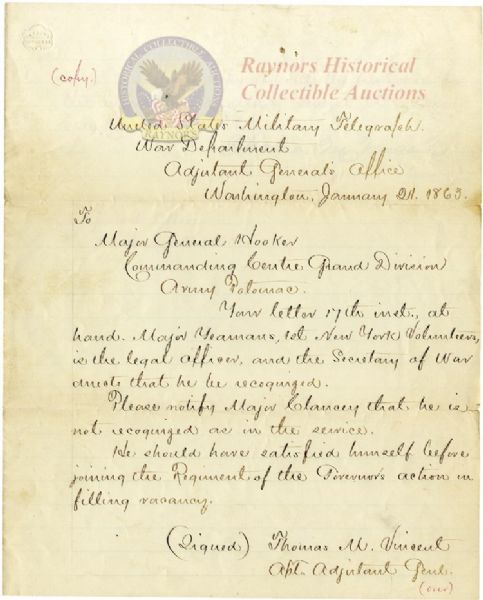 (copy.)
HISTORICAL COLLECTIBLE AUCTIONS
RAYNORS
Raynors Historical
Collectible Auctions
United States Military Telegraph.
War Department
Adjutant General's Office
Washington, January 21. 1863.
To
Major General Hooker
Commanding Centre Grand Division
Army Potomac.
Your letter 17th inst., at
hand. Major Yeamans, 1st New York Volunteers,
is the legal officer, and the Secretary of War
directs that he be recognized.
Please notify Major Clancey that he is
not recognized as in the service.
He should have satisfied himself before
joining the Regiment of the Governor's action in
filling vacancy.
(Signed) Thomas M. Vincent
Asst. Adjutant Genl.
(over)